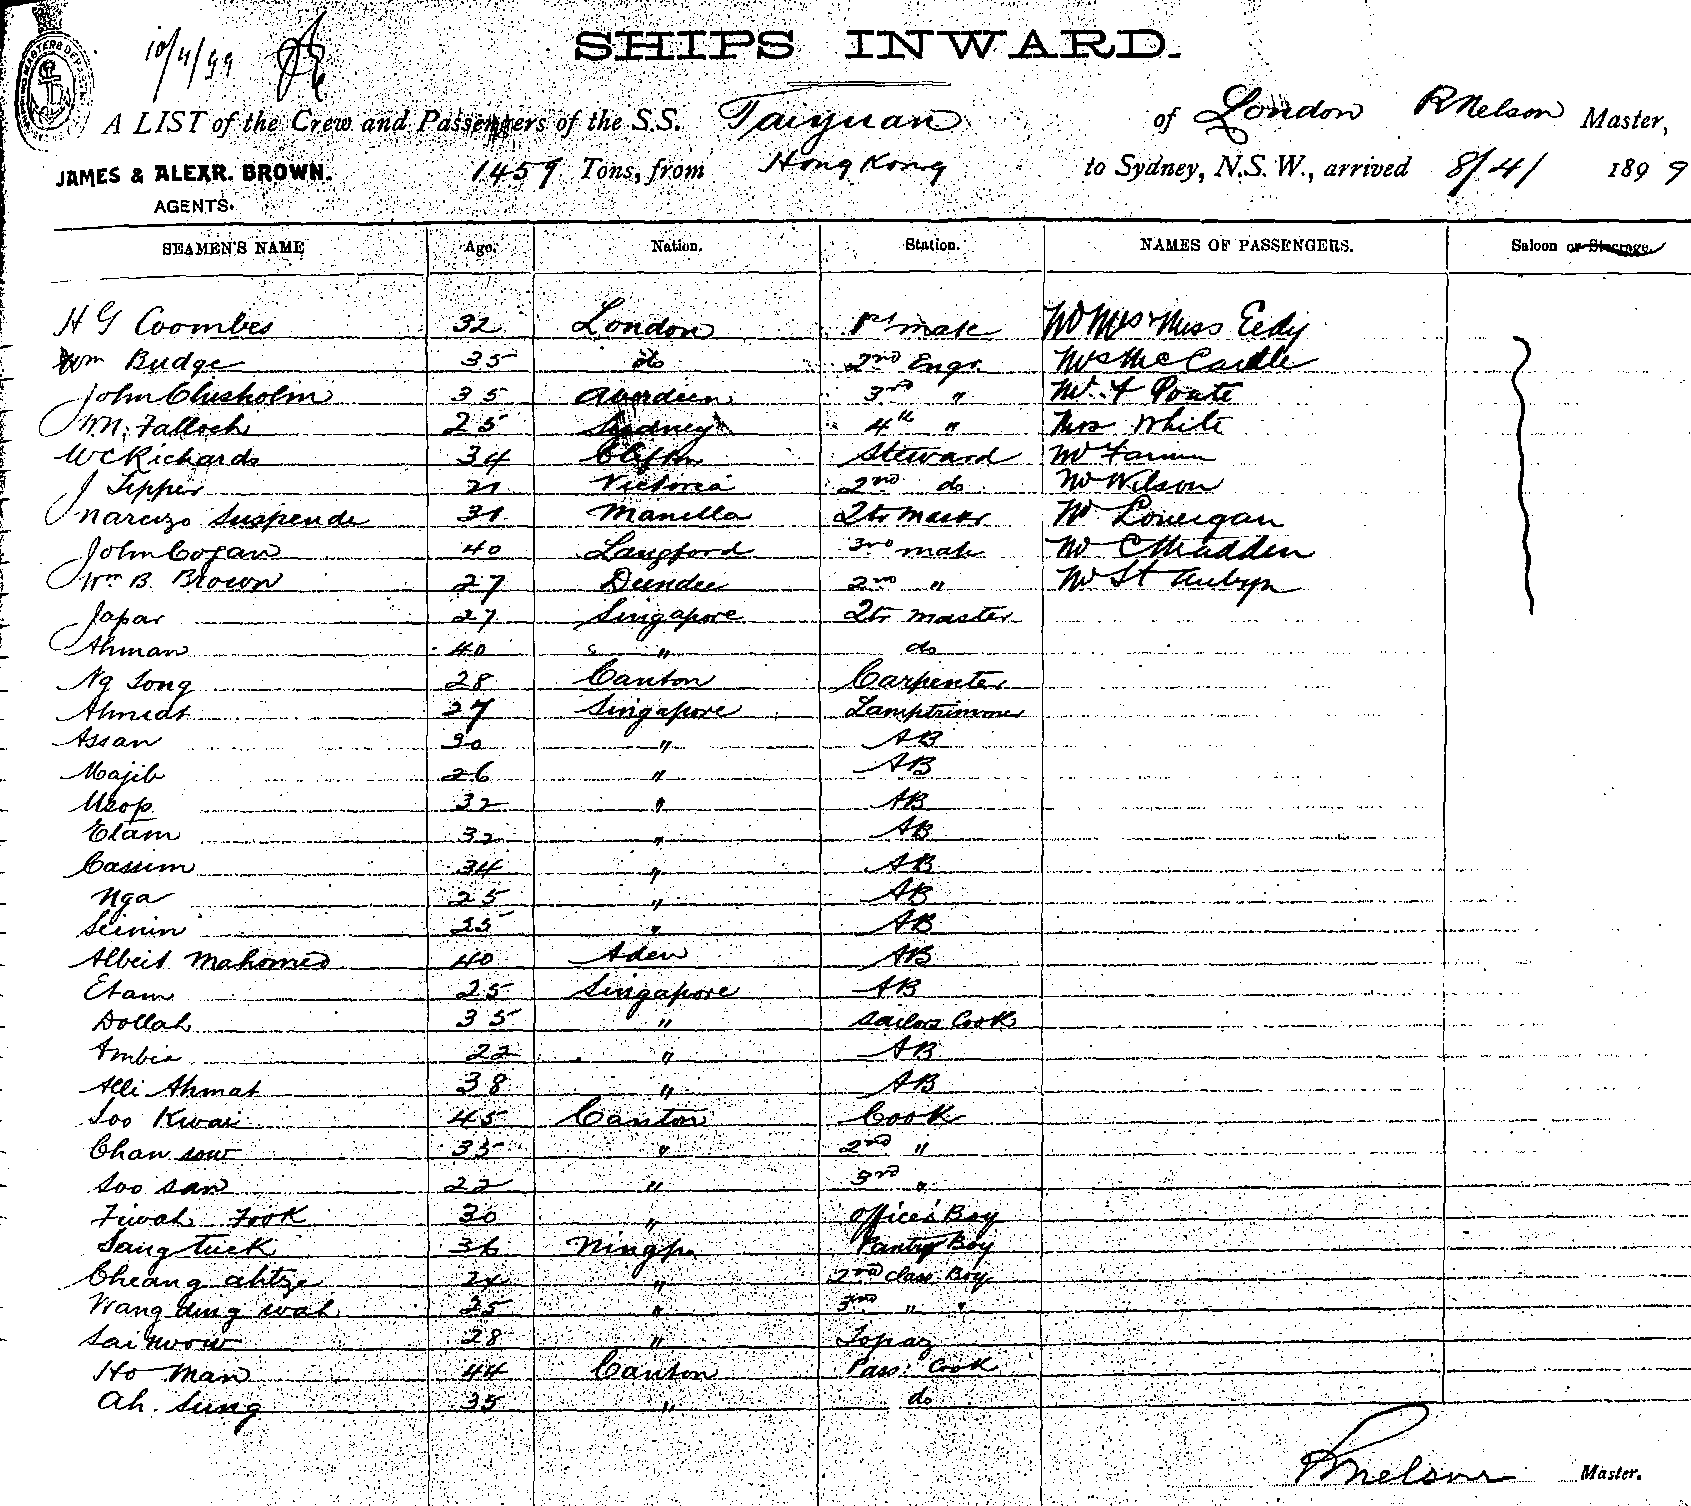 10/4/99
SHIPS INWARD.
A LIST of the Crew and Passengers of the S.S. Taiyuan of London R Nelson Master,
JAMES & ALEXR. BROWN. 1459 Tons, from Hong Kong to Sydney, N.S.W., arrived 8/4/ 1899
AGENTS.
SEAMEN'S NAME Age. Nation. Station. NAMES OF PASSENGERS. Saloon or Steerage.
H G Coombes 32 London 1st mate Mr Mrs & Miss Eedy
Wm Budge 35 do 2nd Engr. Mrs McCardle
John Chisholm 35 Aberdeen 3rd " Mr. F Poate
Wm. Falloch 25 Sydney 4th " Miss White
W C Richards 34 Clifton Steward Mr
J Tipper 21 Victoria 2nd do Mr Wilson
Narcizo Suspende 31 Manella Qtr Mastr Mr Lonergan
John Cogan 40 Langford 3rd mate Mr C Madden
Wm B. Brown 27 Dundee 2nd " Mr St Aubyn
Japar 27 Singapore Qtr master
Ahman 40 " do
Ng Song 28 Canton Carpenter
Ahmat 27 Singapore Lamptrimmer
Assan 30 " AB
Majib 26 " AB
Usop 32 " AB
Etam 32 " AB
Cassim 34 " AB
Nga 25 " AB
Seinin 25 " AB
Albeit Mahomed 40 Aden AB
Etam 25 Singapore AB
Dollah 35 " Sailors Cook
Ambia 22 " AB
Alli Ahmat 38 " AB
Soo Kwai 45 Canton Cook
Chan sow 35 " 2nd "
Soo san 22 " 3rd "
Fook 30 " Officers Boy
Sang tuck 36 Ningpo Pantry Boy
Cheang ahtze 24 " 2nd class Boy
Wang ding wah 25 " 3rd " "
Sai 28 " Topaz
Ho Man 44 Canton Pass: Cook
Ah. Sung 35 " do
R Nelson Master.